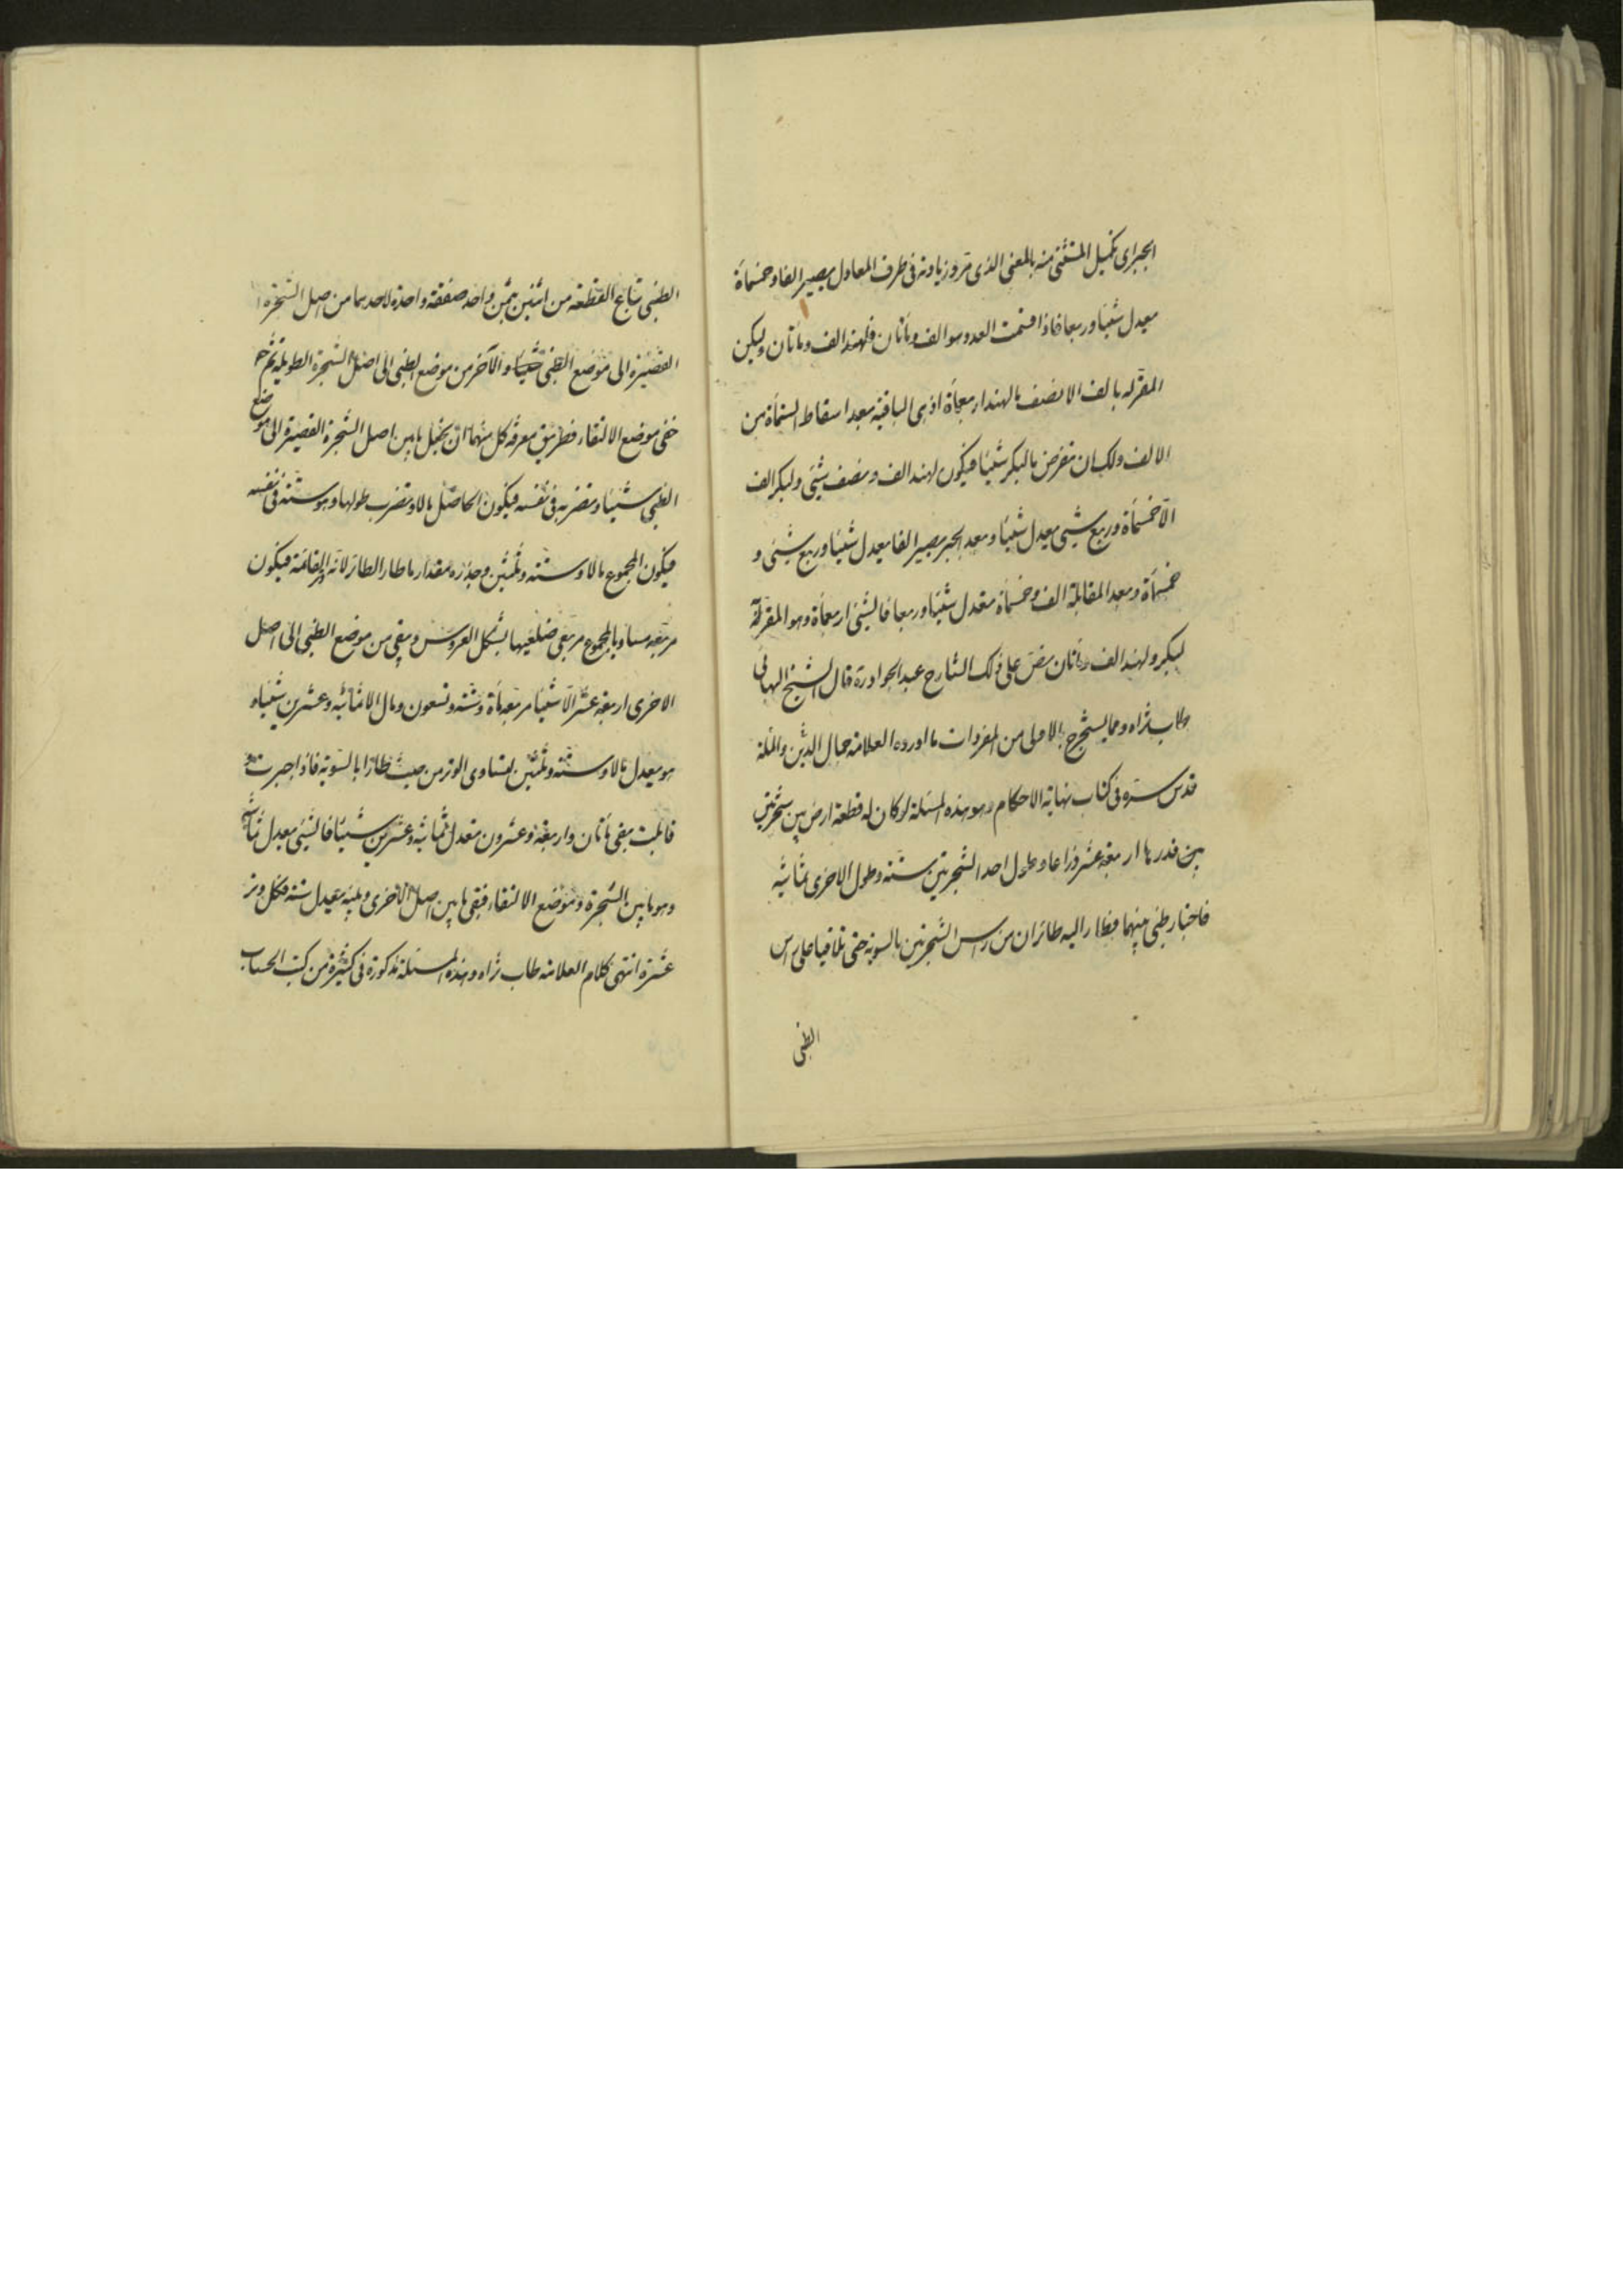 الجبر اى تكميل المستثنى منه بالمعنى الذى مر وزيادته فى طرف المعادل يصير الفا وخمسمأة
يعدل شيئا وربعا فاذا قسمت العدد وهو الف ومأتان فلهند الف ومأتان وليكن
المقر له بالف الا نصف مالهند اربعمأة اذ هى الباقية بعد اسقاط الستمأة من
الالف ولك ان تفرض مالبكر شيئا فيكون لهند الف ونصف شيئى ولبكر الف
الا خمسمأة وربع شيئى يعدل شيئا وبعد الجبر يصير الفا يعدل شيئا وربع شيئى و
خمسمأة وبعد المقابلة الف وخمسمأة تعدل شيئا وربعا فالشيئ اربعمأة وهو المقر به
لبكر ولهند الف ومأتان نص على ذلك الشارح عبد الجواد ره قال الشيخ البهائى
طاب ثراه ومما يستخرج بالاولى من المفردات ما اورده العلامة جمال الدين والملة
قدس سره فى كتاب نهاية الاحكام وهو هذه المسئلة لو كان له قطعة ارض بين شجرتين
بين قدرها اربعة عشر ذراعا وطول احد الشجرتين ستة وطول الاخرى ثمانية
فاجتاز ظبى بينهما فطار اليه طائران من رأس الشجرتين بالسوية حتى تلاقيا على رأس
الظبى
الظبى تباع القطعة من اثنين بثمن واحد صفقة واحدة لاحدهما من اصل الشجرة
القصيرة الى موضع الظبى والآخر من موضع الظبى الى اصل الشجرة الطويلة ثم
خفى موضع الالتقاء فطريق معرفة كل منهما ان يجعل ما بين اصل الشجرة القصيرة الى موضع
الظبى شيئا وتضربه فى نفسه فيكون الحاصل مالا وتضرب طولها وهو ستة فى نفسه
فيكون المجموع مالا وستة وثلثين وجذره مقدار ما طار الطائر لانه وتر القائمة فيكون
مربعه مساويا لمجموع مربعى ضلعيها بشكل العروس ويبقى من موضع الظبى الى اصل
الاخرى اربعة عشر الا شيئا مربعه مأة وستة وتسعون ومال الا ثمانية وعشرين شيئا و
هو يعدل مالا وستة وثلثين لتساوى الوتر من حيث طارا بالسوية فاذا جبرت و
قابلت بقى مأتان واربعة وعشرون تعدل ثمانية وعشرين شيئا فالشيئى يعدل ثمانية
وهو ما بين الشجرة وموضع الالتقاء فبقى ما بين اصل الاخرى وبينه يعدل ستة فكل وتر
عشرة انتهى كلام العلامة طاب ثراه وهذه المسئلة مذكورة فى كثيرة من كتب الحساب